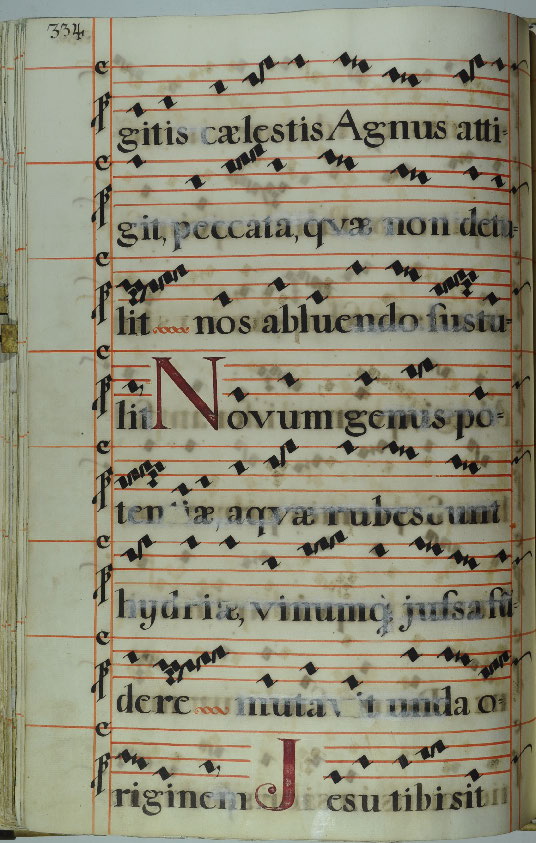 334
gitis cælestis Agnus atti-
git, peccata, quæ non detu-
lit nos abluendo sustu-
lit Novum genus po-
tentiæ, aquæ rubescunt
hydriæ, vinumq; jussa fū-
dere mutavit unda o-
riginem Jesu tibi sit